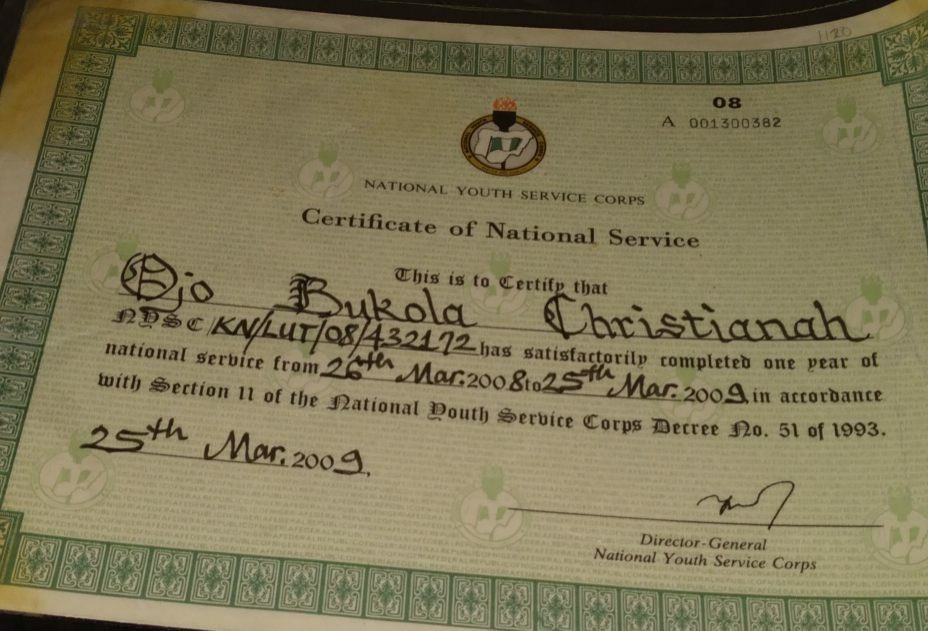 1120
08
A 001300382
NATIONAL YOUTH SERVICE CORPS
Certificate of National Service
This is to Certify that
Ojo Bukola Christianah
NYSC KN/LUT/08/432172 has satisfactorily completed one year of
national service from 26th Mar. 2008 to 25th Mar. 2009 in accordance
with Section 11 of the National Youth Service Corps Decree No. 51 of 1993.
25th Mar. 2009.
Director-General
National Youth Service Corps